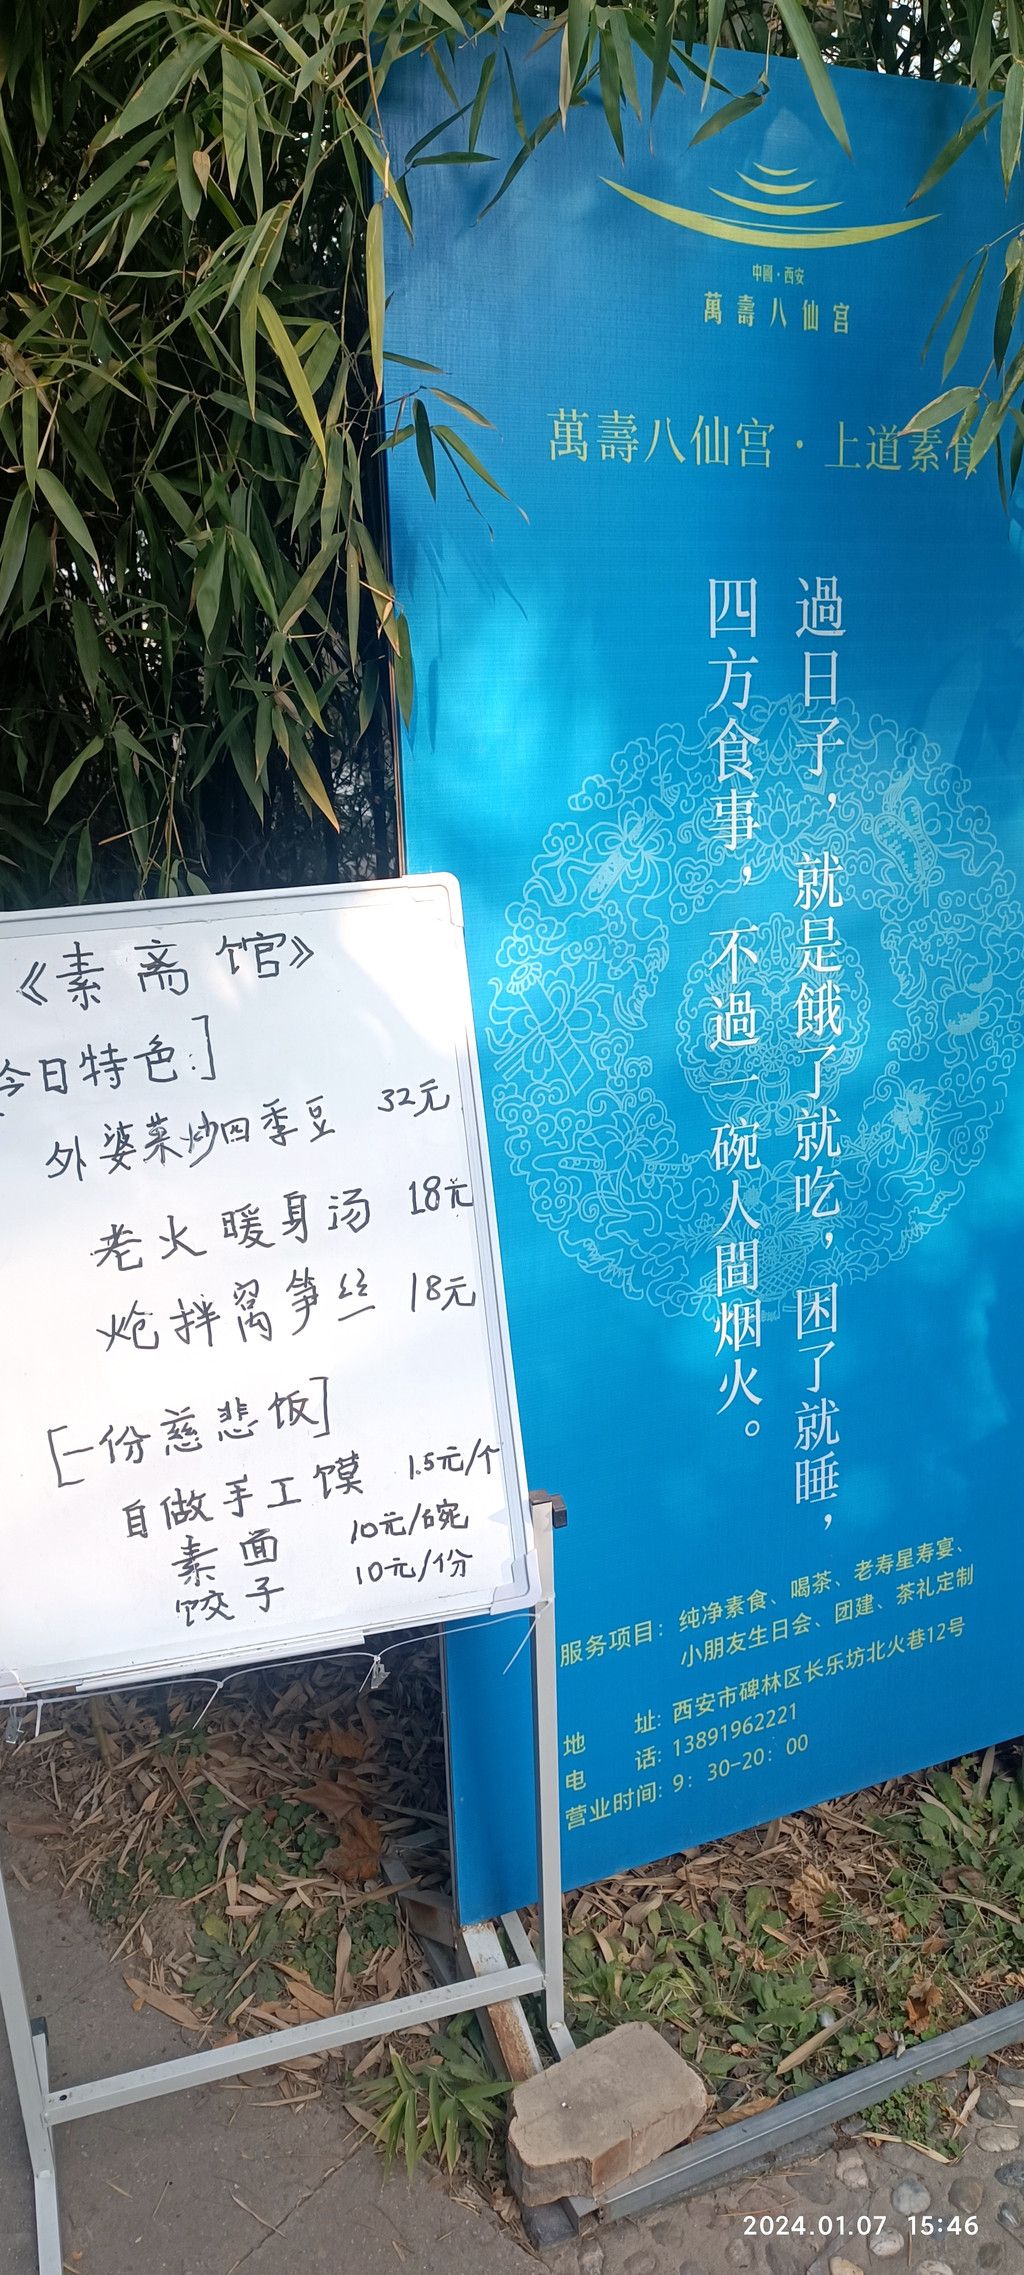 中國·西安
萬壽八仙宫
萬壽八仙宫·上道素食
過日子，就是餓了就吃，困了就睡，
四方食事，不過一碗人間烟火。
服务项目：纯净素食、喝茶、老寿星寿宴、
小朋友生日会、团建、茶礼定制
地址：西安市碑林区长乐坊北火巷12号
电话：13891962221
营业时间：9：30-20：00
《素斋馆》
今日特色：]
外婆菜炒四季豆 32元
老火暖身汤 18元
炝拌莴笋丝 18元
[一份慈悲饭]
自做手工馍 1.5元/个
素面 10元/碗
饺子 10元/份
2024.01.07 15:46